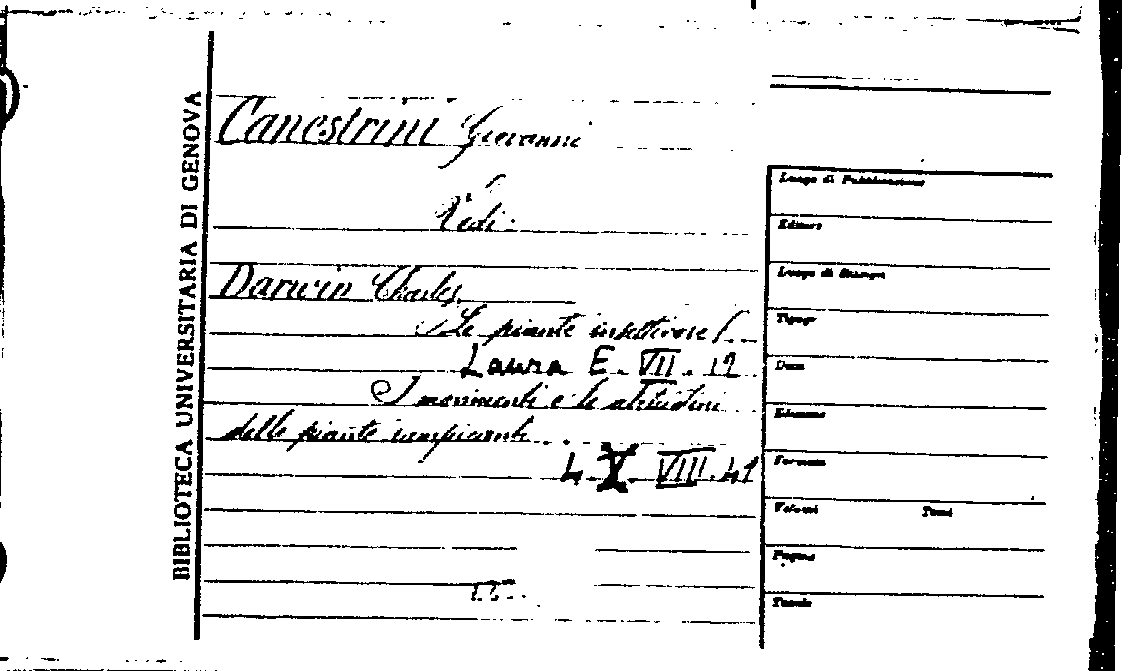 BIBLIOTECA UNIVERSITARIA DI GENOVA
Canestrini Giovanni
Vedi:
Darwin Charles
Le piante insettivore
Laura E. VII. 12
I movimenti e le abitudini
delle piante rampicanti
4 X VIII. 41
Luogo di Pubblicazione
Editore
Luogo di Stampa
Tipogr
Data
Edizione
Formato
Volumi Tomi
Pagine
Tavole